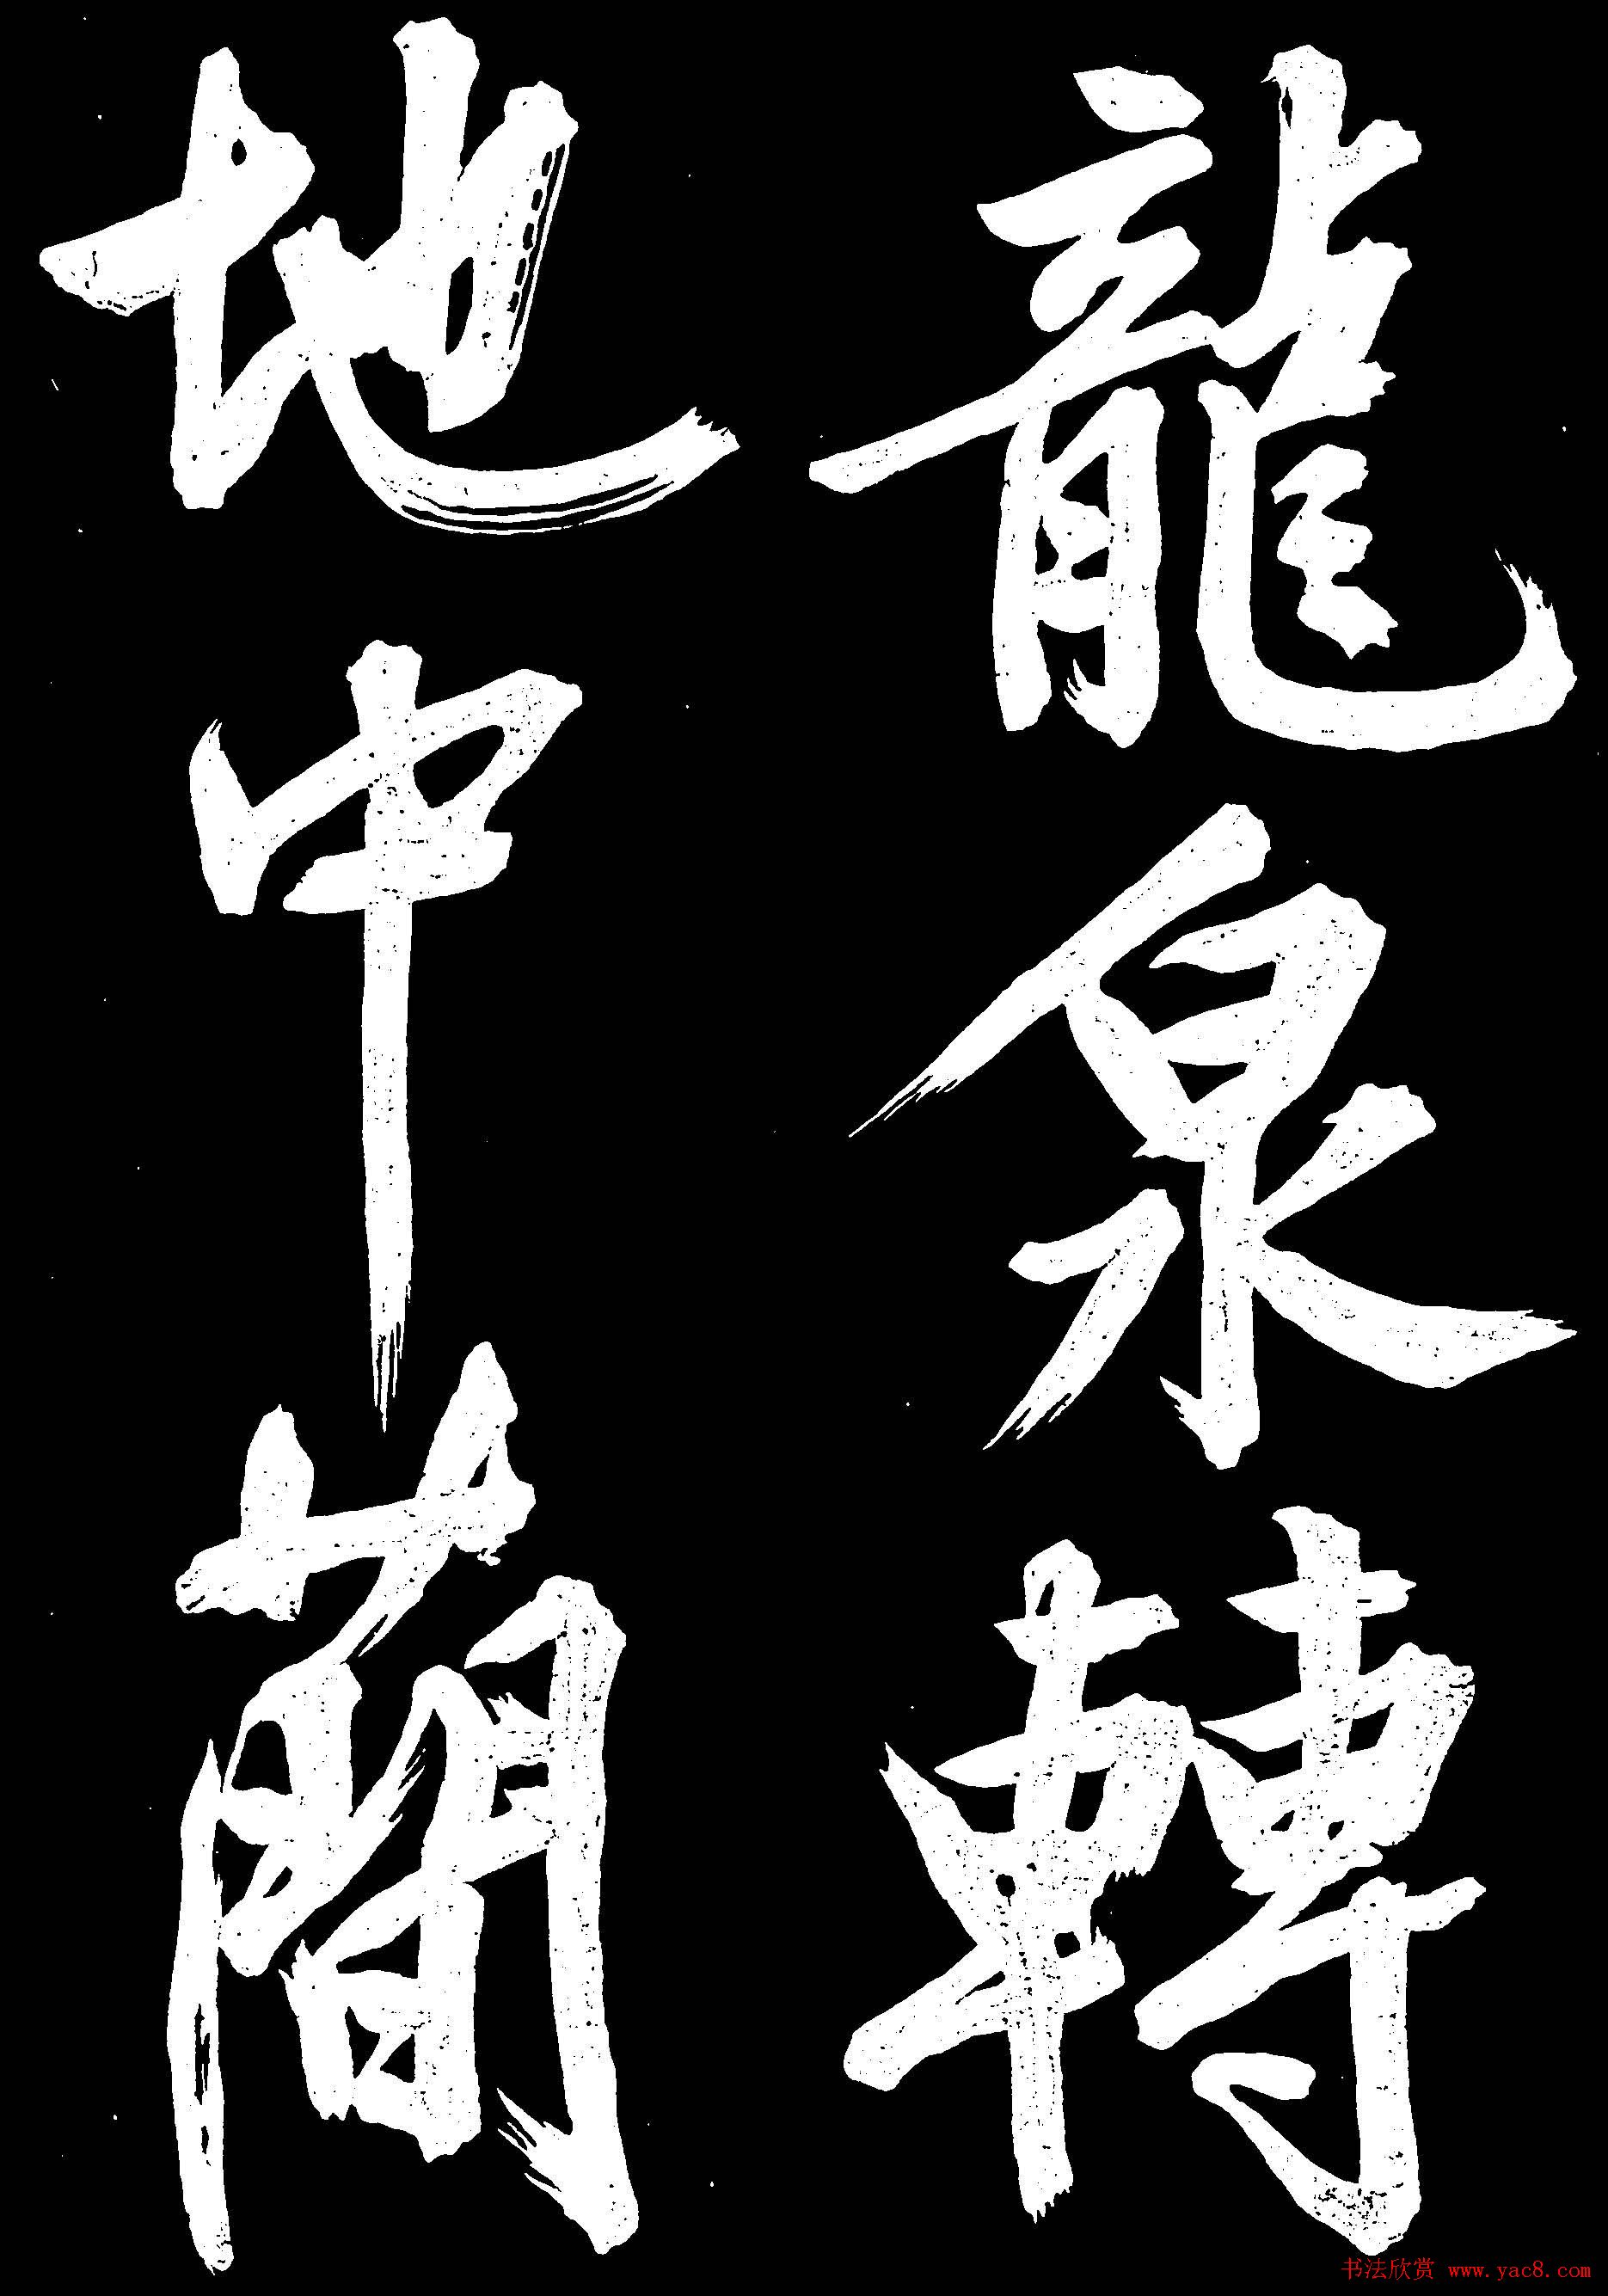 龍泉轉
地中蕳
书法欣赏 www.yac8.com